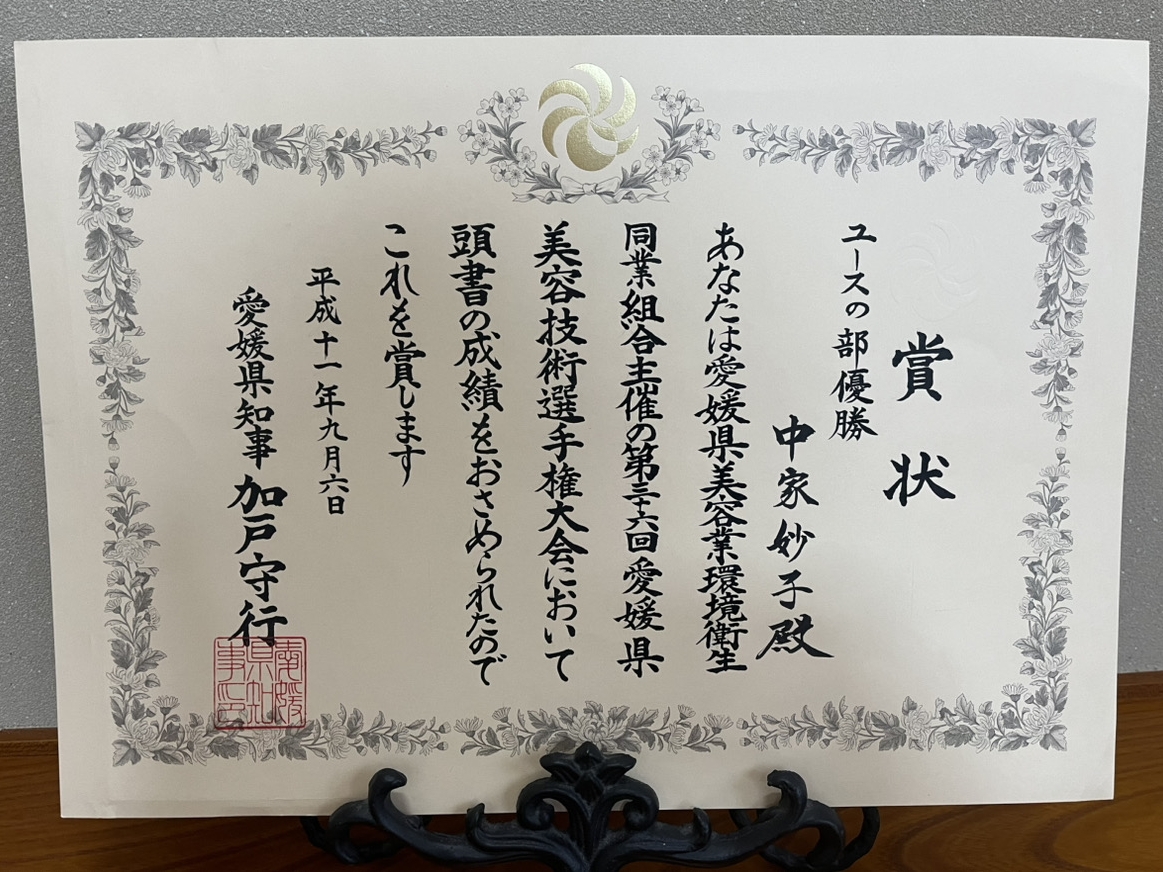 賞状
ユースの部優勝
中家妙子殿
あなたは愛媛県美容業環境衛生
同業組合主催の第三十六回愛媛県
美容技術選手権大会において
頭書の成績をおさめられたので
これを賞します
平成十一年九月六日
愛媛県知事 加戸守行
愛媛
県知
事印